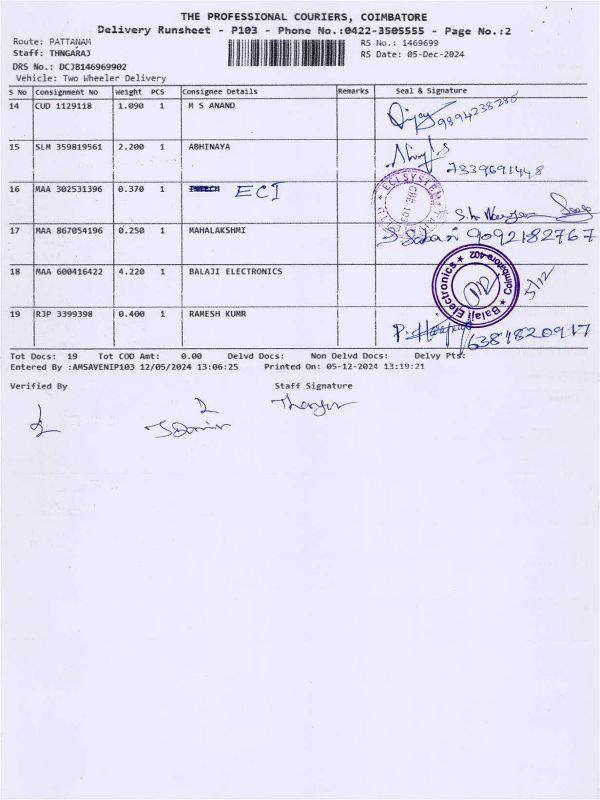 THE PROFESSIONAL COURIERS, COIMBATORE
Delivery Runsheet - P103 - Phone No.:0422-3505555 - Page No.:2
Route: PATTANAM
RS No.: 1469699
Staff: THNGARAJ
RS Date: 05-Dec-2024
DRS No.: DCJB146969902
Vehicle: Two Wheeler Delivery
S No Consignment No Weight PCS Consignee Details Remarks Seal & Signature
14 CUD 1129118 1.090 1 M S ANAND
Vijay 9894238286
15 SLM 359819561 2.200 1 ABHINAYA
7339691448
16 MAA 302531396 0.370 1 ECI
17 MAA 867054196 0.250 1 MAHALAKSHMI
9092182767
18 MAA 600416422 4.220 1 BALAJI ELECTRONICS
★ Balaji Electronics ★ Coimbatore-402
5/12
19 RJP 3399398 0.400 1 RAMESH KUMR
6381820917
Tot Docs: 19 Tot COD Amt: 0.00 Delvd Docs: Non Delvd Docs: Delvy Pts:
Entered By :AMSAVENIP103 12/05/2024 13:06:25 Printed On: 05-12-2024 13:19:21
Verified By Staff Signature